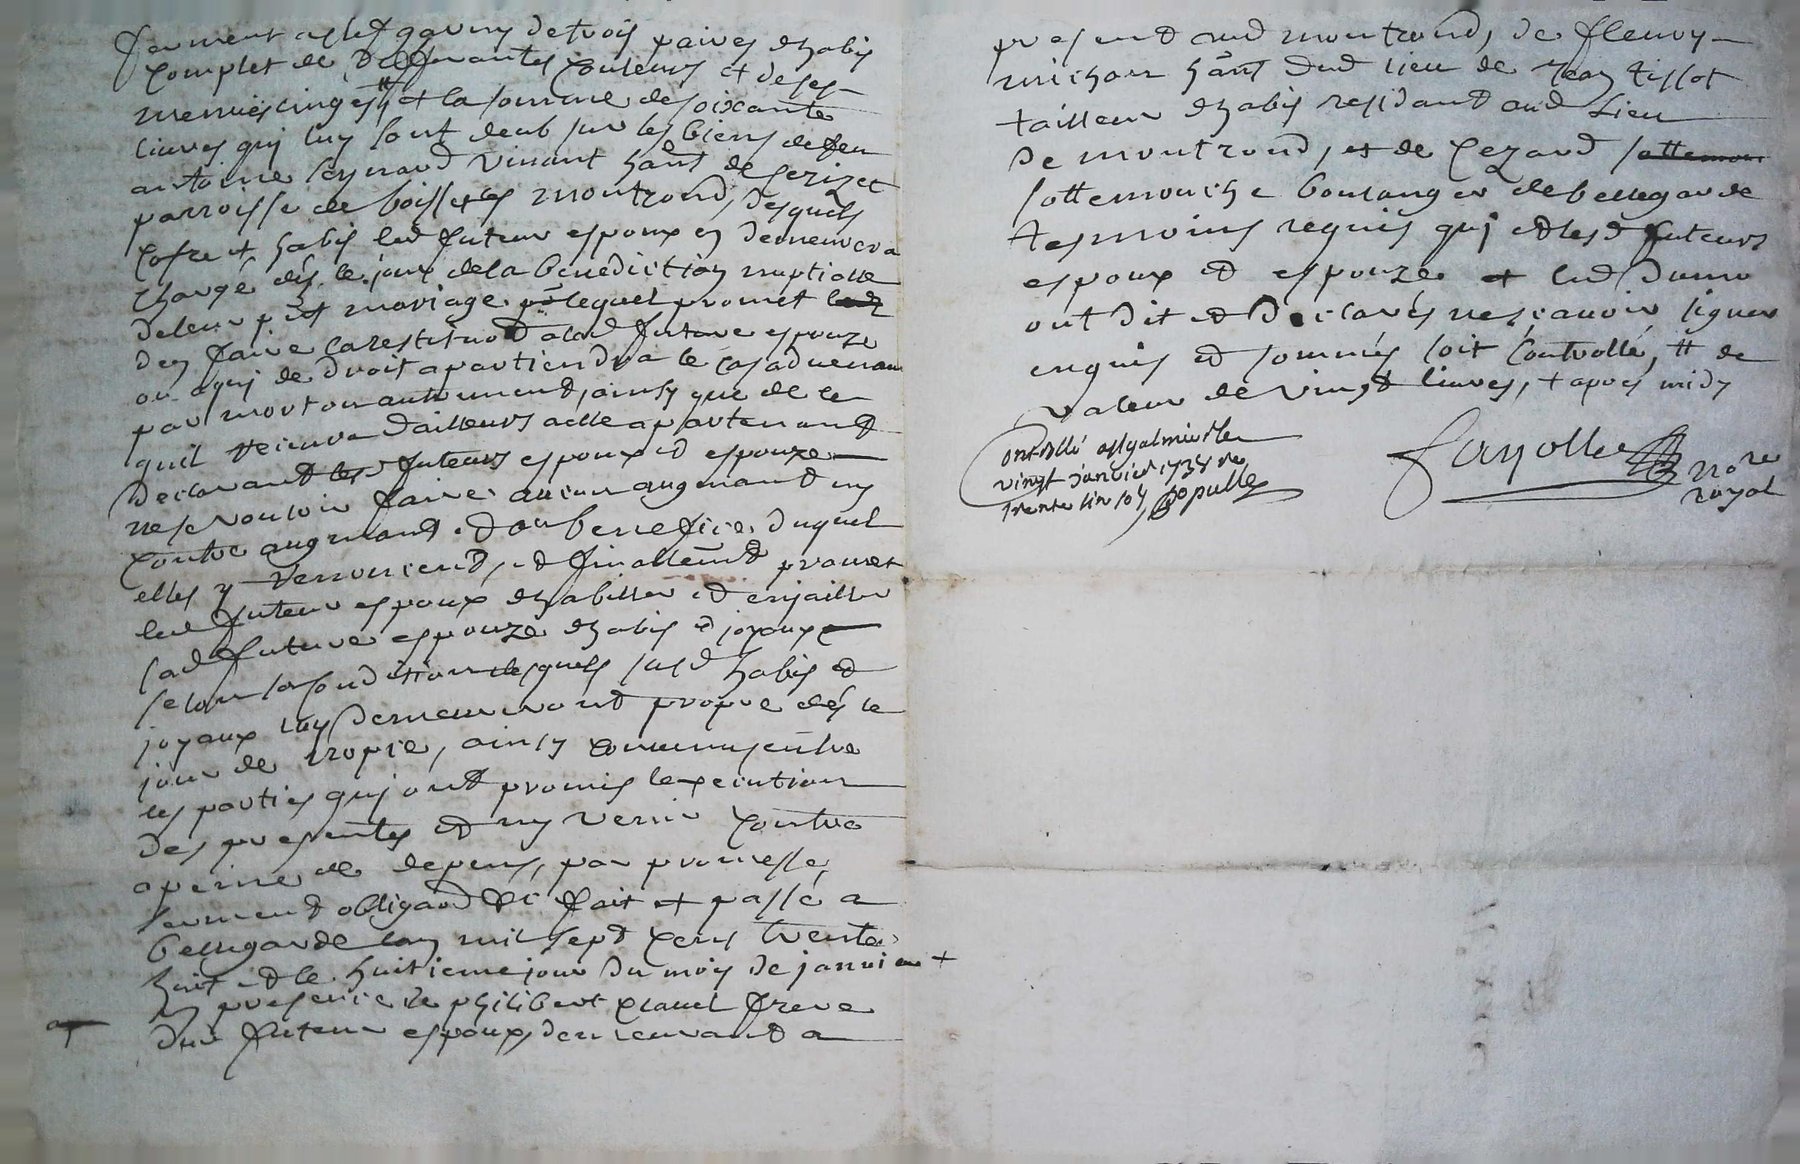 ferment a clef garny de trois paires dhabis
complet de differantes couleurs et de ses
menues linges # et la somme de soixante
livres qui luy sont deub sur les biens de feu
antoine reynaud vivant hant de Cerizet
parroisse de boisset les montrond, desquels
cofre et habis led futeur espoux en demeurera
chargé dés le jour de la benediction nuptialle
de leur pnt mariage lequel promet
den faire la restituon a lad future espouze
ou a qui de droit apartiendra le cas advenant
par mort ou autrement, ainsy que de ce
quil recevra dailleurs a elle apartenant
declarant lesd futeurs espoux et espouze
ne se vouloir faire aucun augmant ny
contre augmant et au benefice duquel
elles y renoncent, et finallemt promet
led futeur espoux dhabiller et enjailler
sad future espouze dhabis et joyaux
selon sa condition lesquels susd habis et
joyaux luy demeureront propre dés le
jour de nopce, ainsy convenu entre
les parties qui ont promis lexecution
des presentes et ny venir contre
a peine de depens, par promesse,
serment obligaon &c fait et passé a
bellegarde lan mil sept cens trente
huit et le huitieme jour du mois de janvier +
en presence de philibert clavel frere
dud futeur espoux, demeurant a
present aud montrond, de fleury
michon hant dud lieu de jean tissot
tailleur dhabis residant aud lieu
de montrond, et de Cezard
sottemouche boulanger de bellegarde
tesmoins requis qui et lesd futeurs
espoux et espouze et lad
ont dit et declarés ne scavoir signer
enquis et sommés soit controllé, # de
valeur de vingt livres, + apres midy
Controllé a St galmier le
vingt janvier 1738 re
trente sin sols
fayolle nore
royal